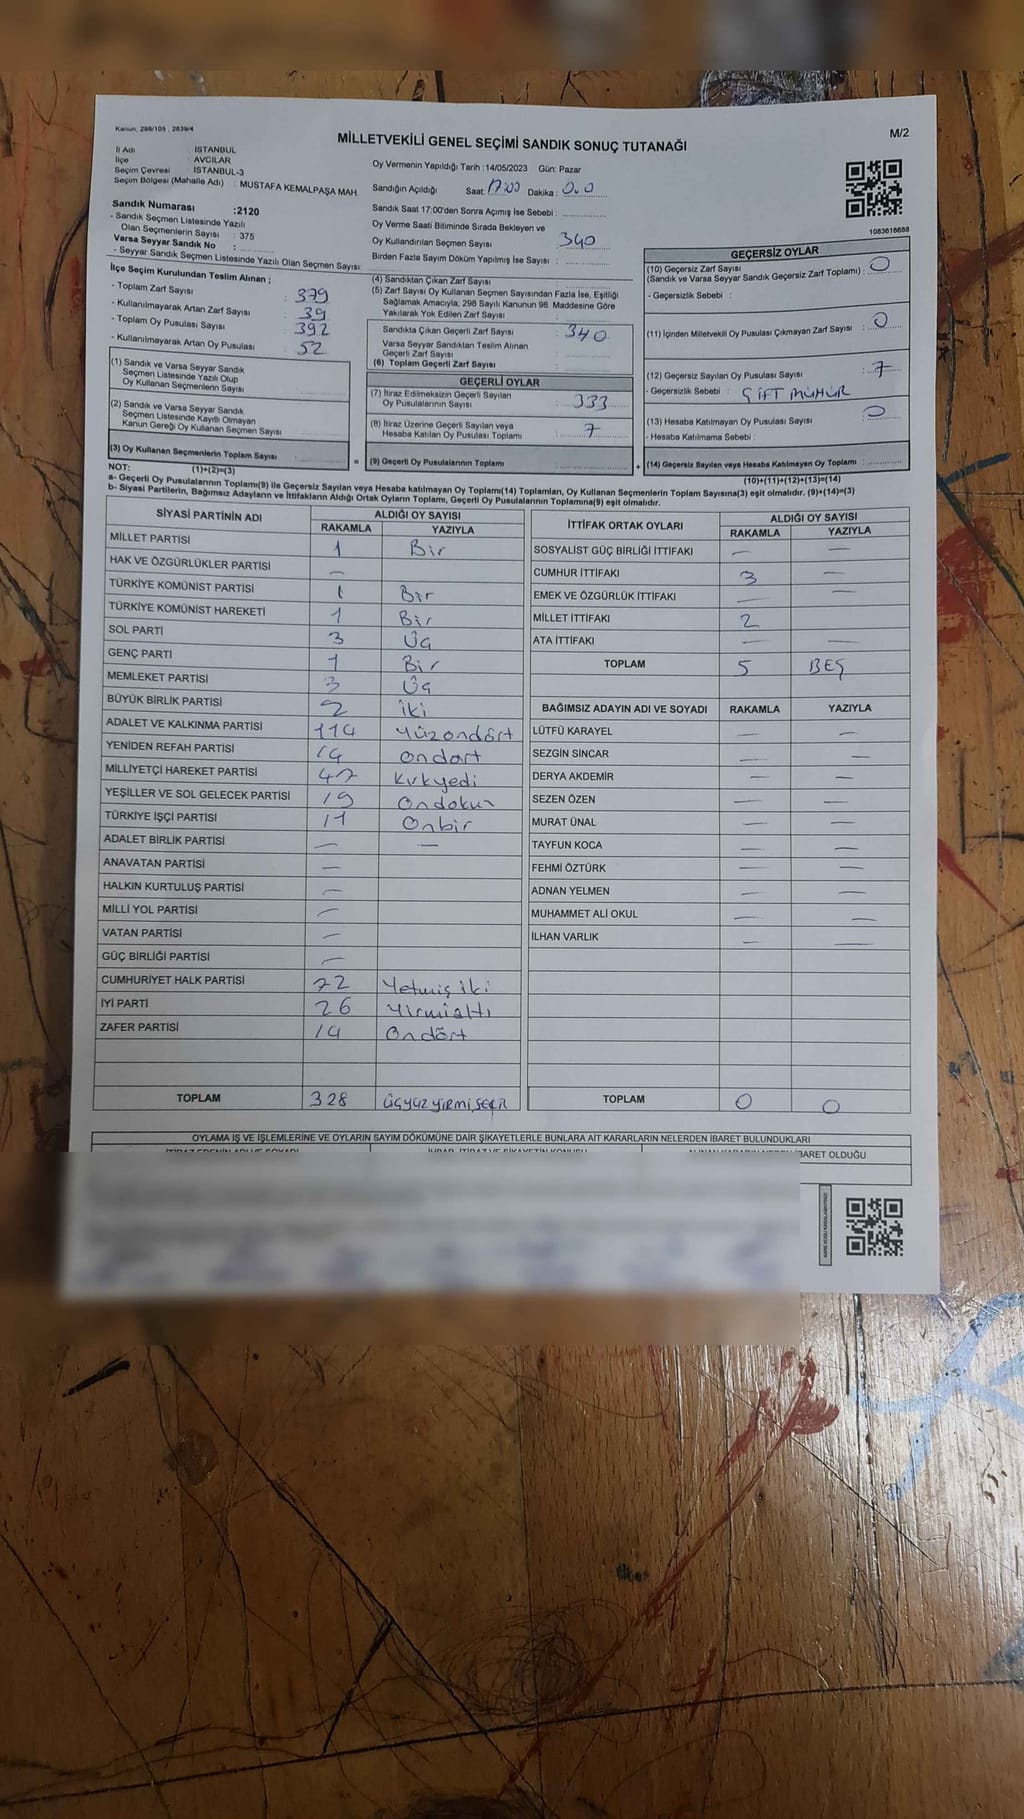 Kanun: 298/105 , 2839/4
MİLLETVEKİLİ GENEL SEÇİMİ SANDIK SONUÇ TUTANAĞI
M/2
İl Adı : İSTANBUL
İlçe : AVCILAR
Seçim Çevresi : İSTANBUL-3
Seçim Bölgesi (Mahalle Adı) : MUSTAFA KEMALPAŞA MAH.
Oy Vermenin Yapıldığı Tarih :14/05/2023 Gün: Pazar
Sandığın Açıldığı Saat: 17:00 Dakika : 0.0
Sandık Saat 17:00'den Sonra Açımış İse Sebebi :
Oy Verme Saati Bitiminde Sırada Bekleyen ve
Oy Kullandırılan Seçmen Sayısı 340
Birden Fazla Sayım Döküm Yapılmış İse Sayısı :
Sandık Numarası :2120
- Sandık Seçmen Listesinde Yazılı
Olan Seçmenlerin Sayısı : 375
Varsa Seyyar Sandık No :
- Seyyar Sandık Seçmen Listesinde Yazılı Olan Seçmen Sayısı:
1083616688
İlçe Seçim Kurulundan Teslim Alınan ;
- Toplam Zarf Sayısı : 379
- Kullanılmayarak Artan Zarf Sayısı : 39
- Toplam Oy Pusulası Sayısı : 392
- Kullanılmayarak Artan Oy Pusulası : 52
(1) Sandık ve Varsa Seyyar Sandık
Seçmen Listesinde Yazılı Olup
Oy Kullanan Seçmenlerin Sayısı :
(2) Sandık ve Varsa Seyyar Sandık
Seçmen Listesinde Kayıtlı Olmayan
Kanun Gereği Oy Kullanan Seçmen Sayısı :
(3) Oy Kullanan Seçmenlerin Toplam Sayısı :
(4) Sandıktan Çıkan Zarf Sayısı :
(5) Zarf Sayısı Oy Kullanan Seçmen Sayısından Fazla İse, Eşitliği
Sağlamak Amacıyla; 298 Sayılı Kanunun 98. Maddesine Göre
Yakılarak Yok Edilen Zarf Sayısı :
Sandıkta Çıkan Geçerli Zarf Sayısı : 340
Varsa Seyyar Sandıktan Teslim Alınan
Geçerli Zarf Sayısı :
(6) Toplam Geçerli Zarf Sayısı :
GEÇERLİ OYLAR
(7) İtiraz Edilmeksizin Geçerli Sayılan
Oy Pusulalarının Sayısı : 333
(8) İtiraz Üzerine Geçerli Sayılan veya
Hesaba Katılan Oy Pusulası Toplamı : 7
= (9) Geçerli Oy Pusulalarının Toplamı :
GEÇERSİZ OYLAR
(10) Geçersiz Zarf Sayısı
(Sandık ve Varsa Seyyar Sandık Geçersiz Zarf Toplamı) : 0
- Geçersizlik Sebebi :
(11) İçinden Milletvekili Oy Pusulası Çıkmayan Zarf Sayısı : 0
(12) Geçersiz Sayılan Oy Pusulası Sayısı : 7
- Geçersizlik Sebebi : ÇİFT MÜHÜR
(13) Hesaba Katılmayan Oy Pusulası Sayısı : 0
- Hesaba Katılmama Sebebi :
+ (14) Geçersiz Sayılan veya Hesaba Katılmayan Oy Toplamı :
NOT: (1)+(2)=(3)
(10)+(11)+(12)+(13)=(14)
a- Geçerli Oy Pusulalarının Toplamı(9) ile Geçersiz Sayılan veya Hesaba katılmayan Oy Toplamı(14) Toplamları, Oy Kullanan Seçmenlerin Toplam Sayısına(3) eşit olmalıdır. (9)+(14)=(3)
b- Siyasi Partilerin, Bağımsız Adayların ve İttifakların Aldığı Ortak Oyların Toplamı, Geçerli Oy Pusulalarının Toplamına(9) eşit olmalıdır.
SİYASİ PARTİNİN ADI ALDIĞI OY SAYISI
RAKAMLA YAZIYLA
MİLLET PARTİSİ 1 Bir
HAK VE ÖZGÜRLÜKLER PARTİSİ —
TÜRKİYE KOMÜNİST PARTİSİ 1 Bir
TÜRKİYE KOMÜNİST HAREKETİ 1 Bir
SOL PARTİ 3 Üç
GENÇ PARTİ 1 Bir
MEMLEKET PARTİSİ 3 Üç
BÜYÜK BİRLİK PARTİSİ 2 iki
ADALET VE KALKINMA PARTİSİ 114 Yüzondört
YENİDEN REFAH PARTİSİ 14 ondört
MİLLİYETÇİ HAREKET PARTİSİ 47 Kırkyedi
YEŞİLLER VE SOL GELECEK PARTİSİ 19 Ondokuz
TÜRKİYE İŞÇİ PARTİSİ 11 Onbir
ADALET BİRLİK PARTİSİ — —
ANAVATAN PARTİSİ —
HALKIN KURTULUŞ PARTİSİ —
MİLLİ YOL PARTİSİ —
VATAN PARTİSİ —
GÜÇ BİRLİĞİ PARTİSİ —
CUMHURİYET HALK PARTİSİ 72 Yetmiş iki
İYİ PARTİ 26 Yirmialtı
ZAFER PARTİSİ 14 Ondört
TOPLAM 328 ÜÇYÜZ YİRMİ SEKİZ
İTTİFAK ORTAK OYLARI ALDIĞI OY SAYISI
RAKAMLA YAZIYLA
SOSYALİST GÜÇ BİRLİĞİ İTTİFAKI — —
CUMHUR İTTİFAKI 3 —
EMEK VE ÖZGÜRLÜK İTTİFAKI — —
MİLLET İTTİFAKI 2
ATA İTTİFAKI — —
TOPLAM 5 BEŞ
BAĞIMSIZ ADAYIN ADI VE SOYADI RAKAMLA YAZIYLA
LÜTFÜ KARAYEL — —
SEZGİN SİNCAR — —
DERYA AKDEMİR — —
SEZEN ÖZEN — —
MURAT ÜNAL — —
TAYFUN KOCA — —
FEHMİ ÖZTÜRK — —
ADNAN YELMEN — —
MUHAMMET ALİ OKUL — —
İLHAN VARLIK — —
TOPLAM 0 0
OYLAMA İŞ VE İŞLEMLERİNE VE OYLARIN SAYIM DÖKÜMÜNE DAİR ŞİKAYETLERLE BUNLARA AİT KARARLARIN NELERDEN İBARET BULUNDUKLARI
İBARET OLDUĞU